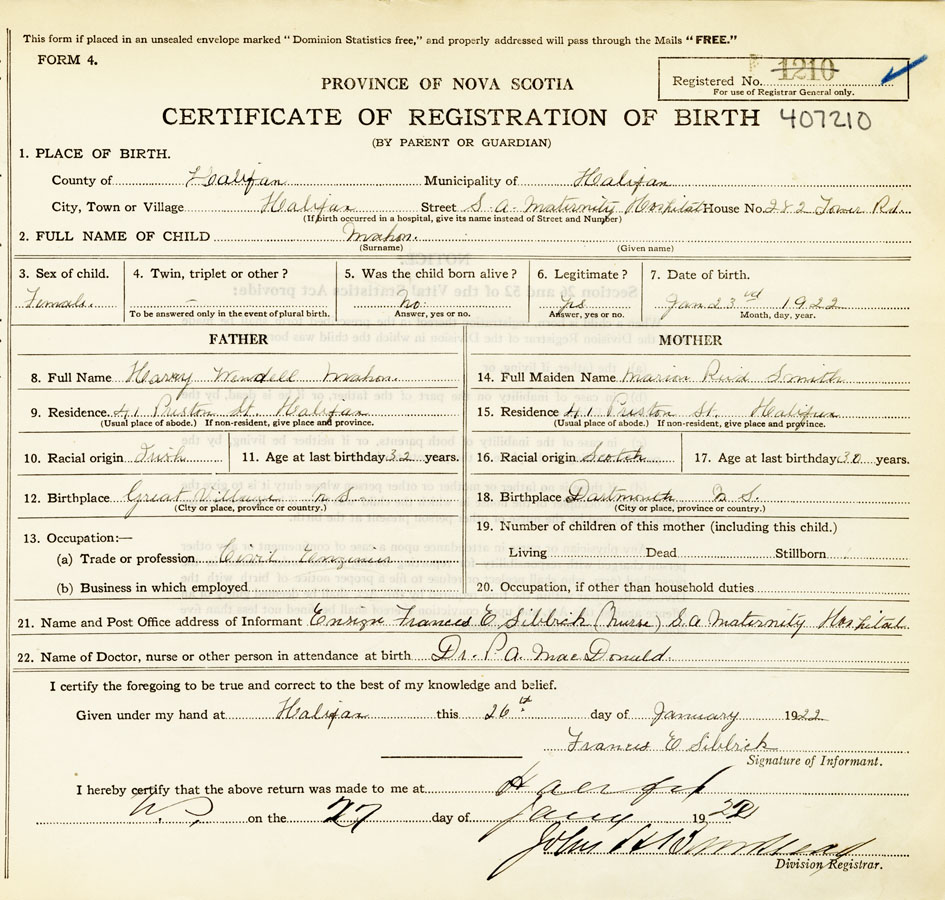 This form if placed in an unsealed envelope marked "Dominion Statistics free," and properly addressed will pass through the Mails "FREE."
FORM 4.
Registered No. 1210
For use of Registrar General only.
PROVINCE OF NOVA SCOTIA
CERTIFICATE OF REGISTRATION OF BIRTH 407210
(BY PARENT OR GUARDIAN)
1. PLACE OF BIRTH.
County of Halifax Municipality of Halifax
City, Town or Village Halifax Street S. A. Maternity Hospital House No. 282 Tower Rd.
(If birth occurred in a hospital, give its name instead of Street and Number)
2. FULL NAME OF CHILD Mahon.
(Surname) (Given name)
3. Sex of child. 4. Twin, triplet or other? 5. Was the child born alive? 6. Legitimate? 7. Date of birth.
Female. — No. Yes Jan 23rd 1922
To be answered only in the event of plural birth. Answer, yes or no. Answer, yes or no. Month, day, year.
FATHER MOTHER
8. Full Name Harry Wendell Mahon. 14. Full Maiden Name Marion Reid Smith
9. Residence. 41 Preston St. Halifax 15. Residence 41 Preston St. Halifax
(Usual place of abode.) If non-resident, give place and province. (Usual place of abode.) If non-resident, give place and province.
10. Racial origin Irish 11. Age at last birthday 32 years. 16. Racial origin Scotch 17. Age at last birthday 30 years.
12. Birthplace Great Village N S. 18. Birthplace Dartmouth N S.
(City or place, province or country.) (City or place, province or country.)
13. Occupation:— 19. Number of children of this mother (including this child.)
(a) Trade or profession Civil Engineer Living Dead Stillborn
(b) Business in which employed 20. Occupation, if other than household duties
21. Name and Post Office address of Informant Ensign Frances E Sibbick (Nurse) S A Maternity Hospital
22. Name of Doctor, nurse or other person in attendance at birth Dr. P. A. MacDonald.
I certify the foregoing to be true and correct to the best of my knowledge and belief.
Given under my hand at Halifax this 26th day of January 1922
Frances E Sibbick
Signature of Informant.
I hereby certify that the above return was made to me at Halifax
N.S, on the 27 day of Jany 1922
John
Division Registrar.